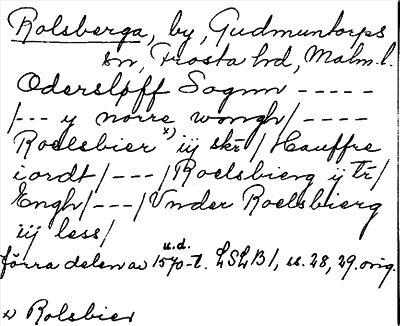 Rolsberga, by, Gudmuntorps
sn, Frosta hd, Malm.l.
Oderslöff Sognn - - - - -
/- - - y nörre wongh/ - - - -
Roelsbier x) iij skr/ Hauffre
iordt/ - - - /Roelsbierg ij tr/
Engh/ - - - /Vnder Roelsbierg
iij less/
u.d.
förra delen av 1570-t. LSLB1, s. 28, 29. orig.
x) Rolsbier